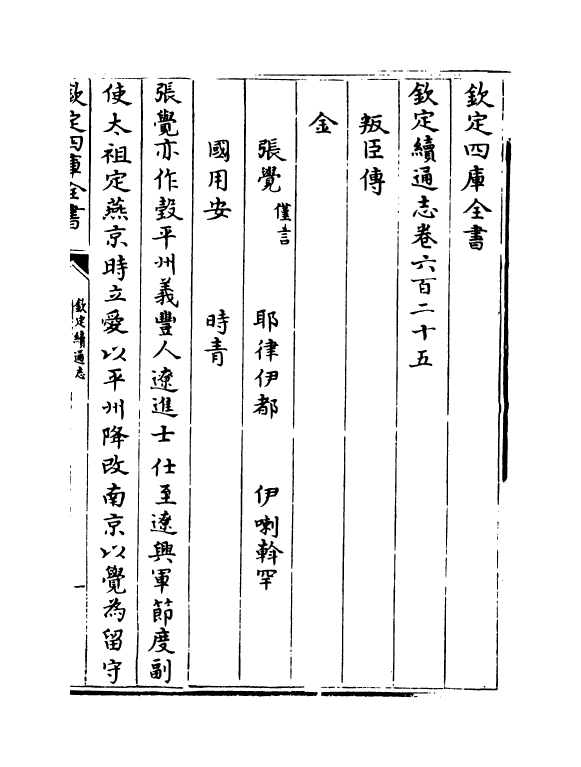 欽定四庫全書
欽定續通志卷六百二十五
叛臣傳
金
張覺 僅言 耶律伊都 伊喇斡罕
國用安 時青
張覺亦作瑴平州義豐人遼進士仕至遼興軍節度副
使太祖定燕京時立愛以平州降改南京以覺為留守
欽定四庫全書
欽定續通志
一